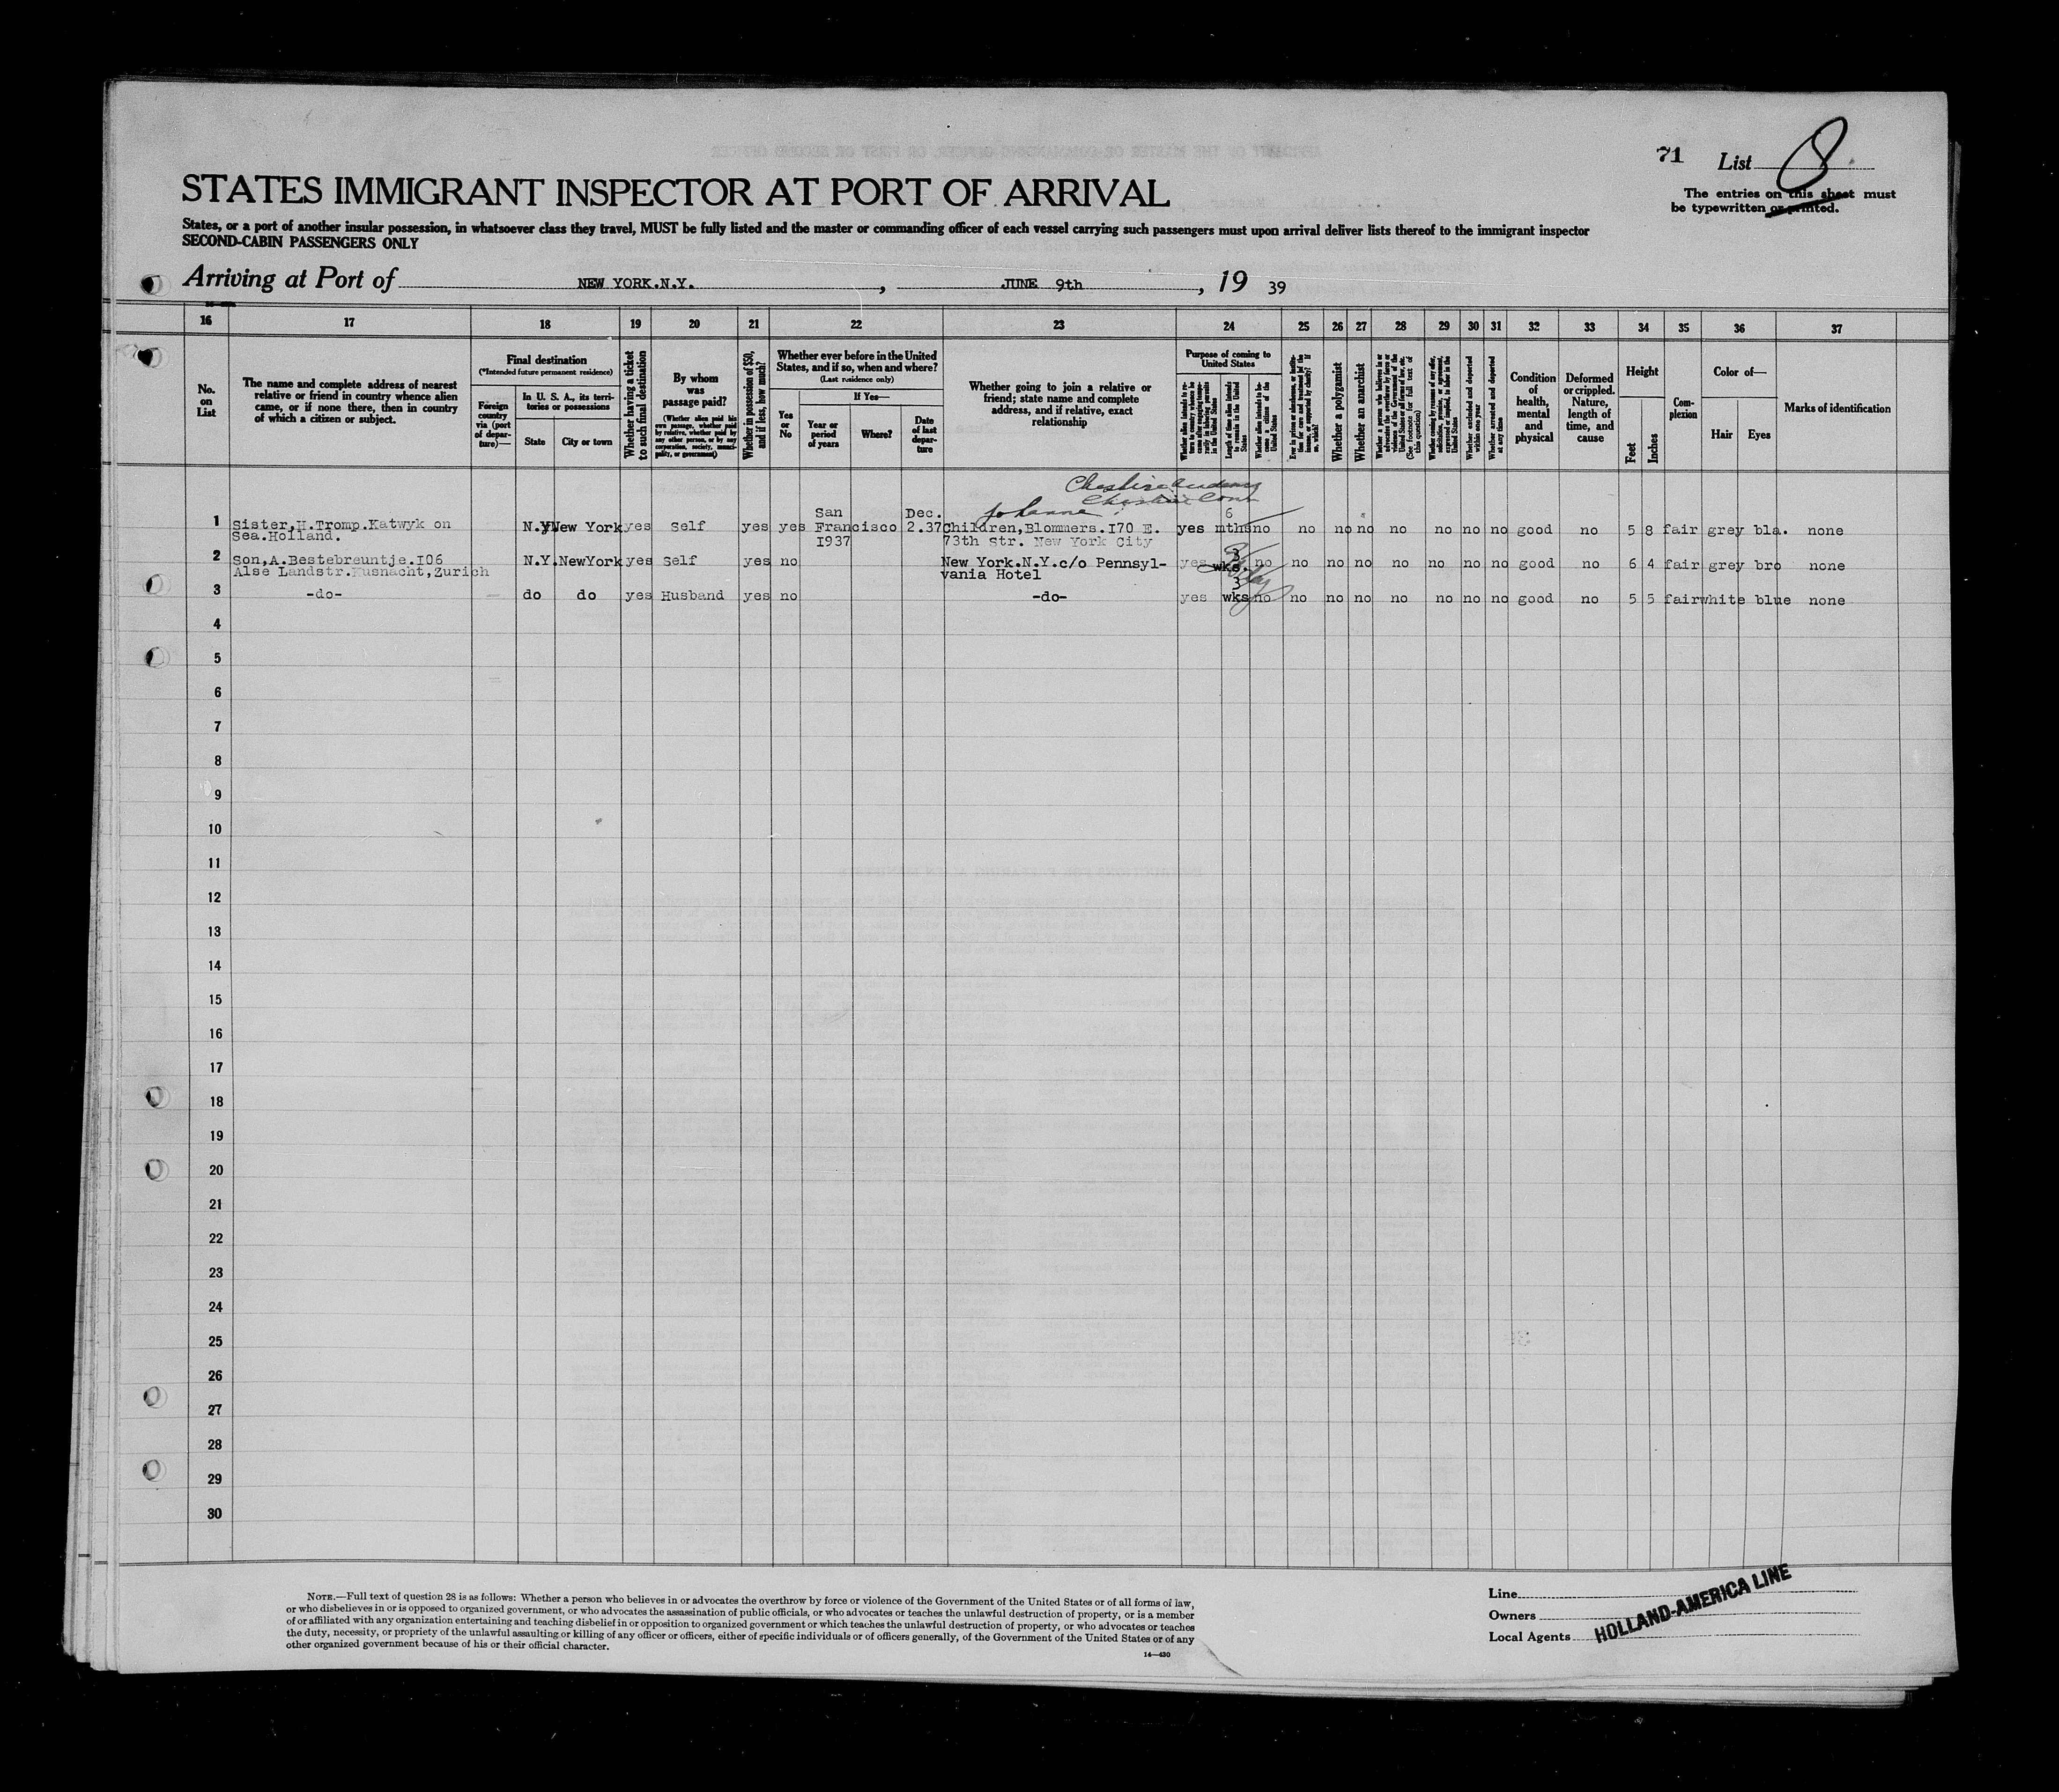 71 List 8
The entries on this sheet must
be typewritten or printed.
STATES IMMIGRANT INSPECTOR AT PORT OF ARRIVAL
States, or a port of another insular possession, in whatsoever class they travel, MUST be fully listed and the master or commanding officer of each vessel carrying such passengers must upon arrival deliver lists thereof to the immigrant inspector
SECOND-CABIN PASSENGERS ONLY
Arriving at Port of NEW YORK.N.Y. , JUNE 9th , 19 39
16 17 18 19 20 21 22 23 24 25 26 27 28 29 30 31 32 33 34 35 36 37
No.
on
List
The name and complete address of nearest
relative or friend in country whence alien
came, or if none there, then in country
of which a citizen or subject.
Final destination
(*Intended future permanent residence)
Foreign
country
via (port
of depar-
ture)—
In U. S. A., its terri-
tories or possessions
State
City or town
Whether having a ticket
to such final destination
By whom
was
passage paid?
(Whether alien paid his
own passage, whether paid
by relative, whether paid by
any other person, or by any
corporation, society, munici-
pality, or government)
Whether in possession of $50,
and if less, how much?
Whether ever before in the United
States, and if so, when and where?
(Last residence only)
Yes
or
No
If Yes—
Year or
period
of years
Where?
Date
of last
depar-
ture
Whether going to join a relative or
friend; state name and complete
address, and if relative, exact
relationship
Purpose of coming to
United States
Length of time alien intends
to remain in the United
States
Whether alien intends to be-
come a citizen of the
United States
Whether a polygamist
Whether an anarchist
Whether excluded and deported
within one year
Whether arrested and deported
at any time
Condition
of
health,
mental
and
physical
Deformed
or crippled.
Nature,
length of
time, and
cause
Height
Feet
Inches
Com-
plexion
Color of—
Hair
Eyes
Marks of identification
Johanna
1 Sister,H.Tromp.Katwyk on
Sea.Holland.
N.Y. New York yes Self yes yes San
Francisco
1937
Dec.
2.37
Children,Blommers.I70 E.
73th str. New York City
yes 6
mths no no no no no no no no good no 5 8 fair grey bla. none
2 Son,A.Bestebreuntje.I06
Alse Landstr.Kusnacht,Zurich
N.Y. NewYork yes Self yes no
New York.N.Y.c/o Pennsyl-
vania Hotel
yes 3
wks. no no no no no no no no good no 6 4 fair grey bro none
3 -do- do do yes Husband yes no -do- yes 3
wks no no no no no no no no good no 5 5 fair white blue none
4
5
6
7
8
9
10
11
12
13
14
15
16
17
18
19
20
21
22
23
24
25
26
27
28
29
30
NOTE.—Full text of question 28 is as follows: Whether a person who believes in or advocates the overthrow by force or violence of the Government of the United States or of all forms of law,
or who disbelieves in or is opposed to organized government, or who advocates the assassination of public officials, or who advocates or teaches the unlawful destruction of property, or is a member
of or affiliated with any organization entertaining and teaching disbelief in or opposition to organized government or which teaches the unlawful destruction of property, or who advocates or teaches
the duty, necessity, or propriety of the unlawful assaulting or killing of any officer or officers, either of specific individuals or of officers generally, of the Government of the United States or of any
other organized government because of his or their official character.
14—430
Line
Owners
Local Agents
HOLLAND-AMERICA LINE